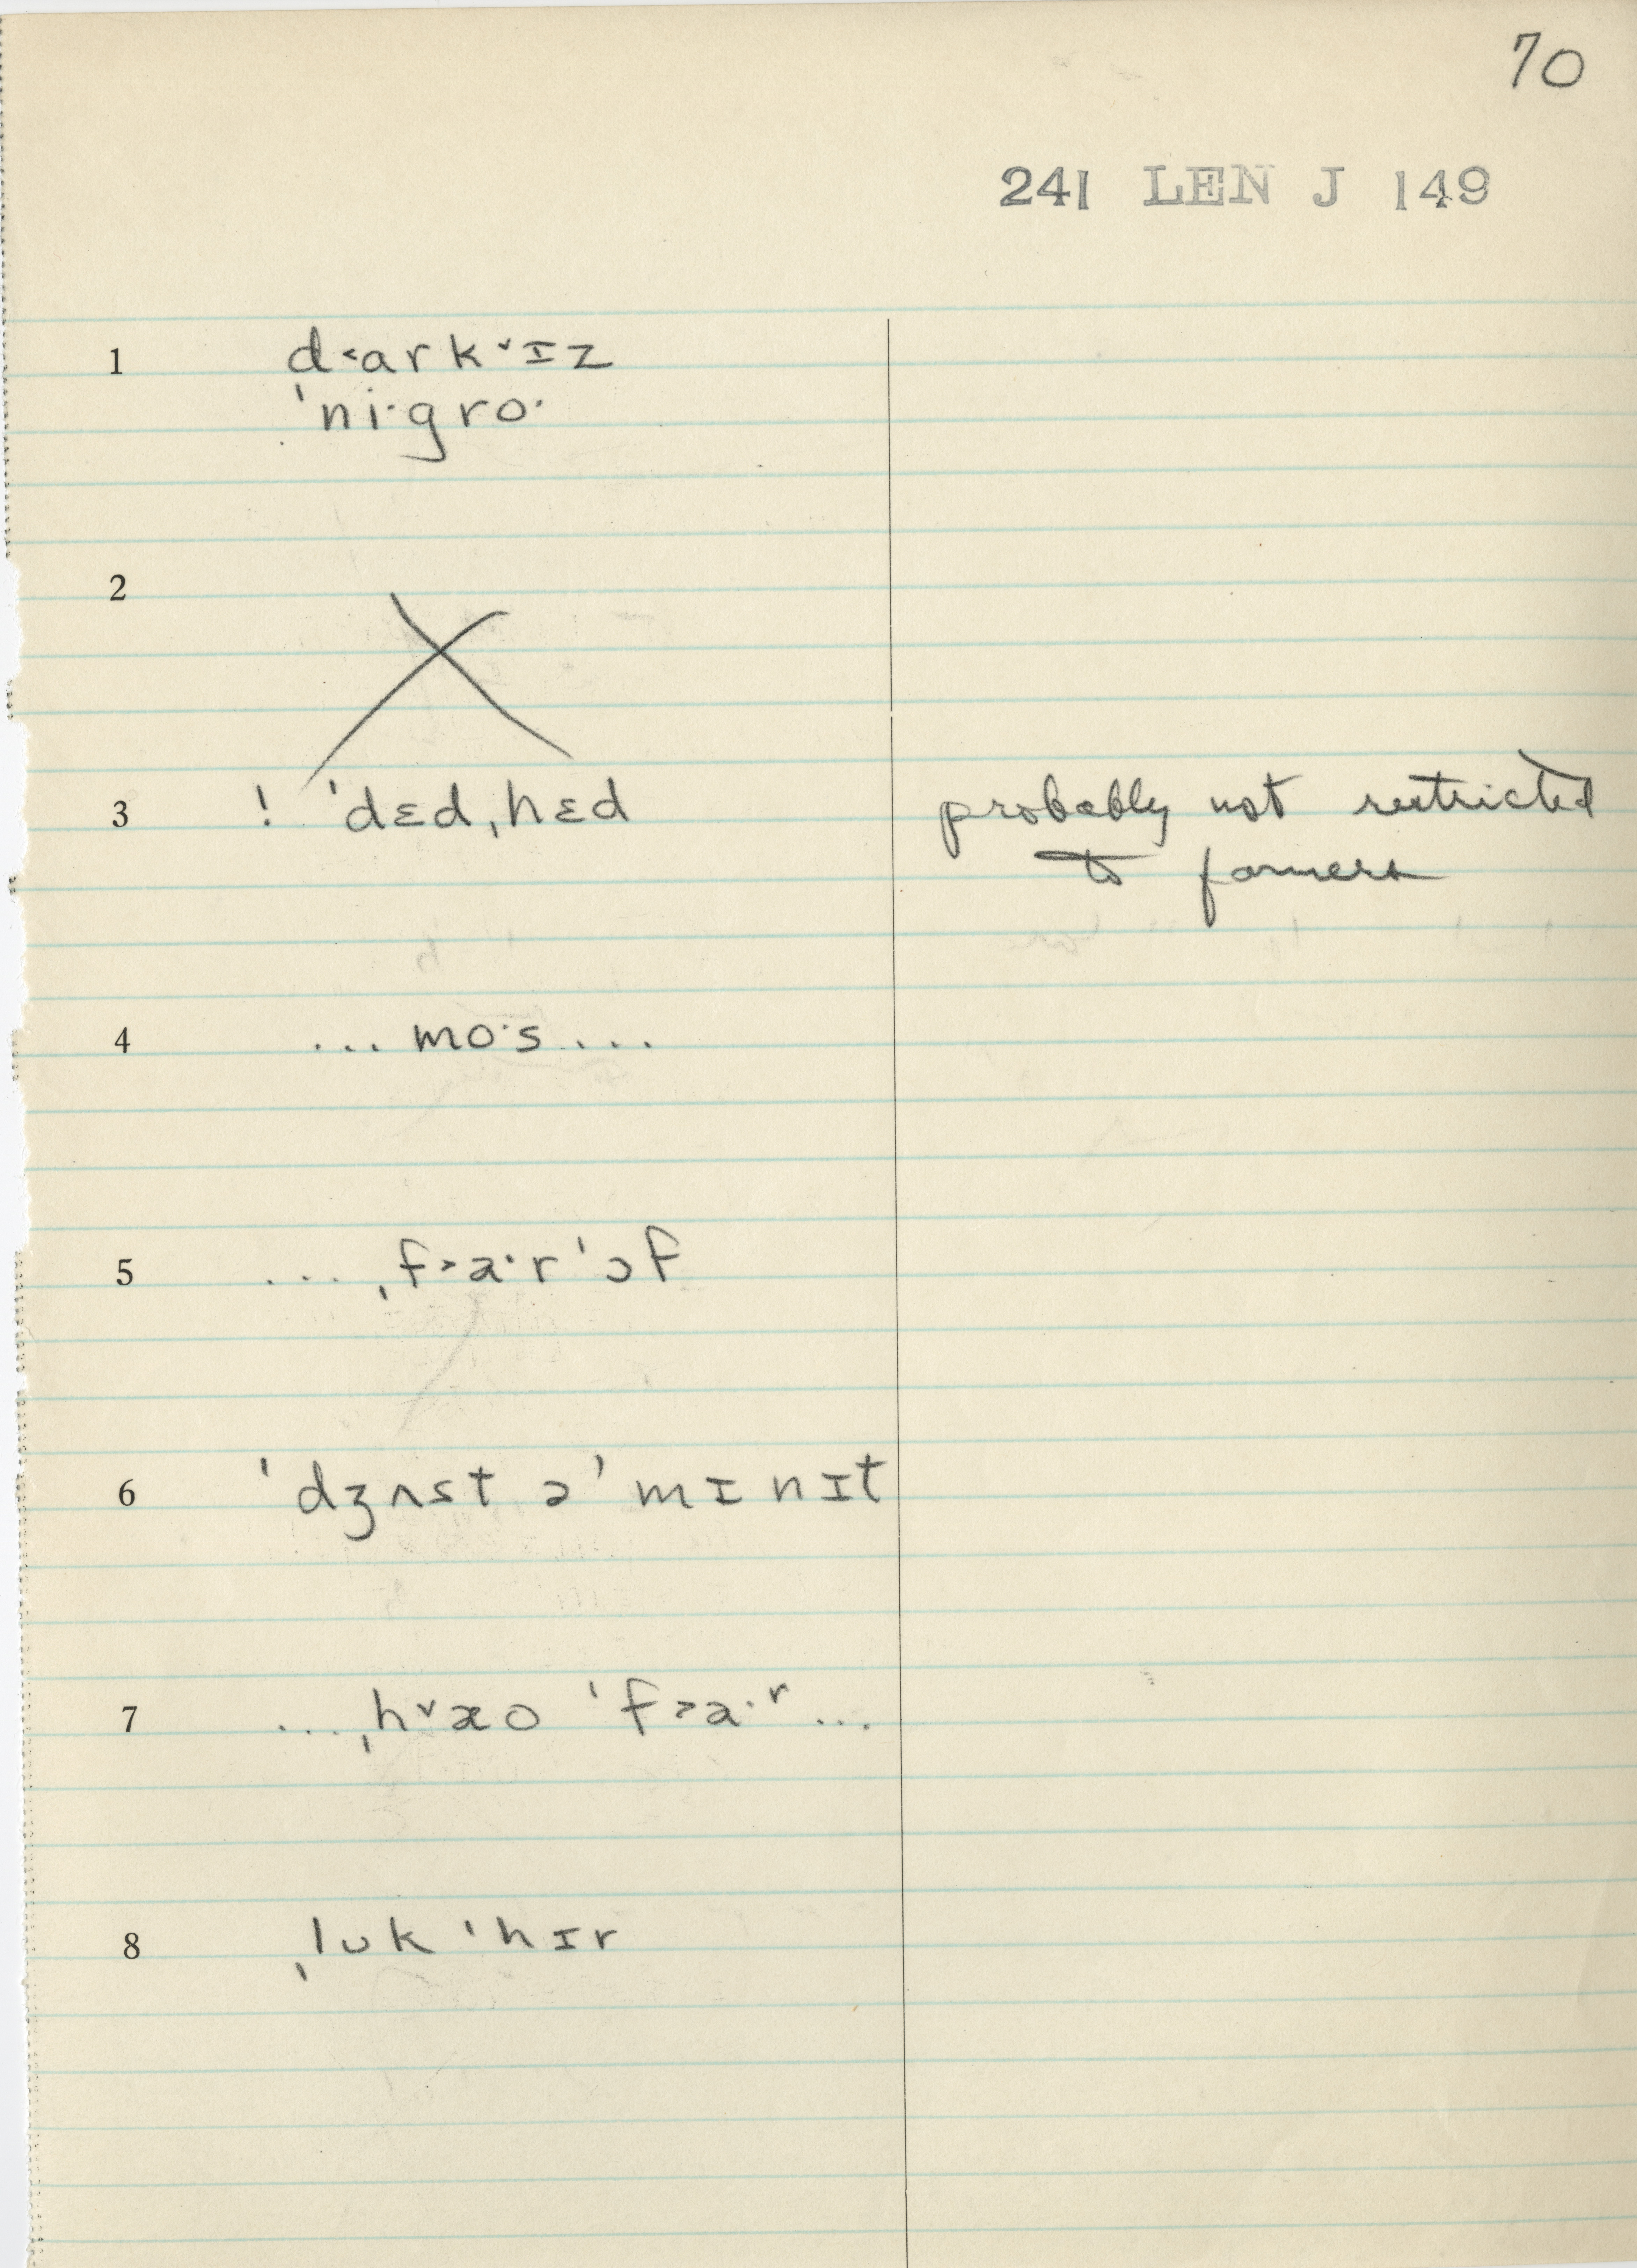 70
241 LEN J 149
1 d˂ark˅ɪz
ˈni·gro·
2
3 ! ˈdɛdˌhɛd probably not restricted
to farmers
4 ... mo·s ...
5 ... ˌf˃a·rˈɔf
6 ˈdʒʌst əˈmɪnɪt
7 ... ˌh˅æo ˈf˃a·ʳ ...
8 ˌlʊk ˈhɪr